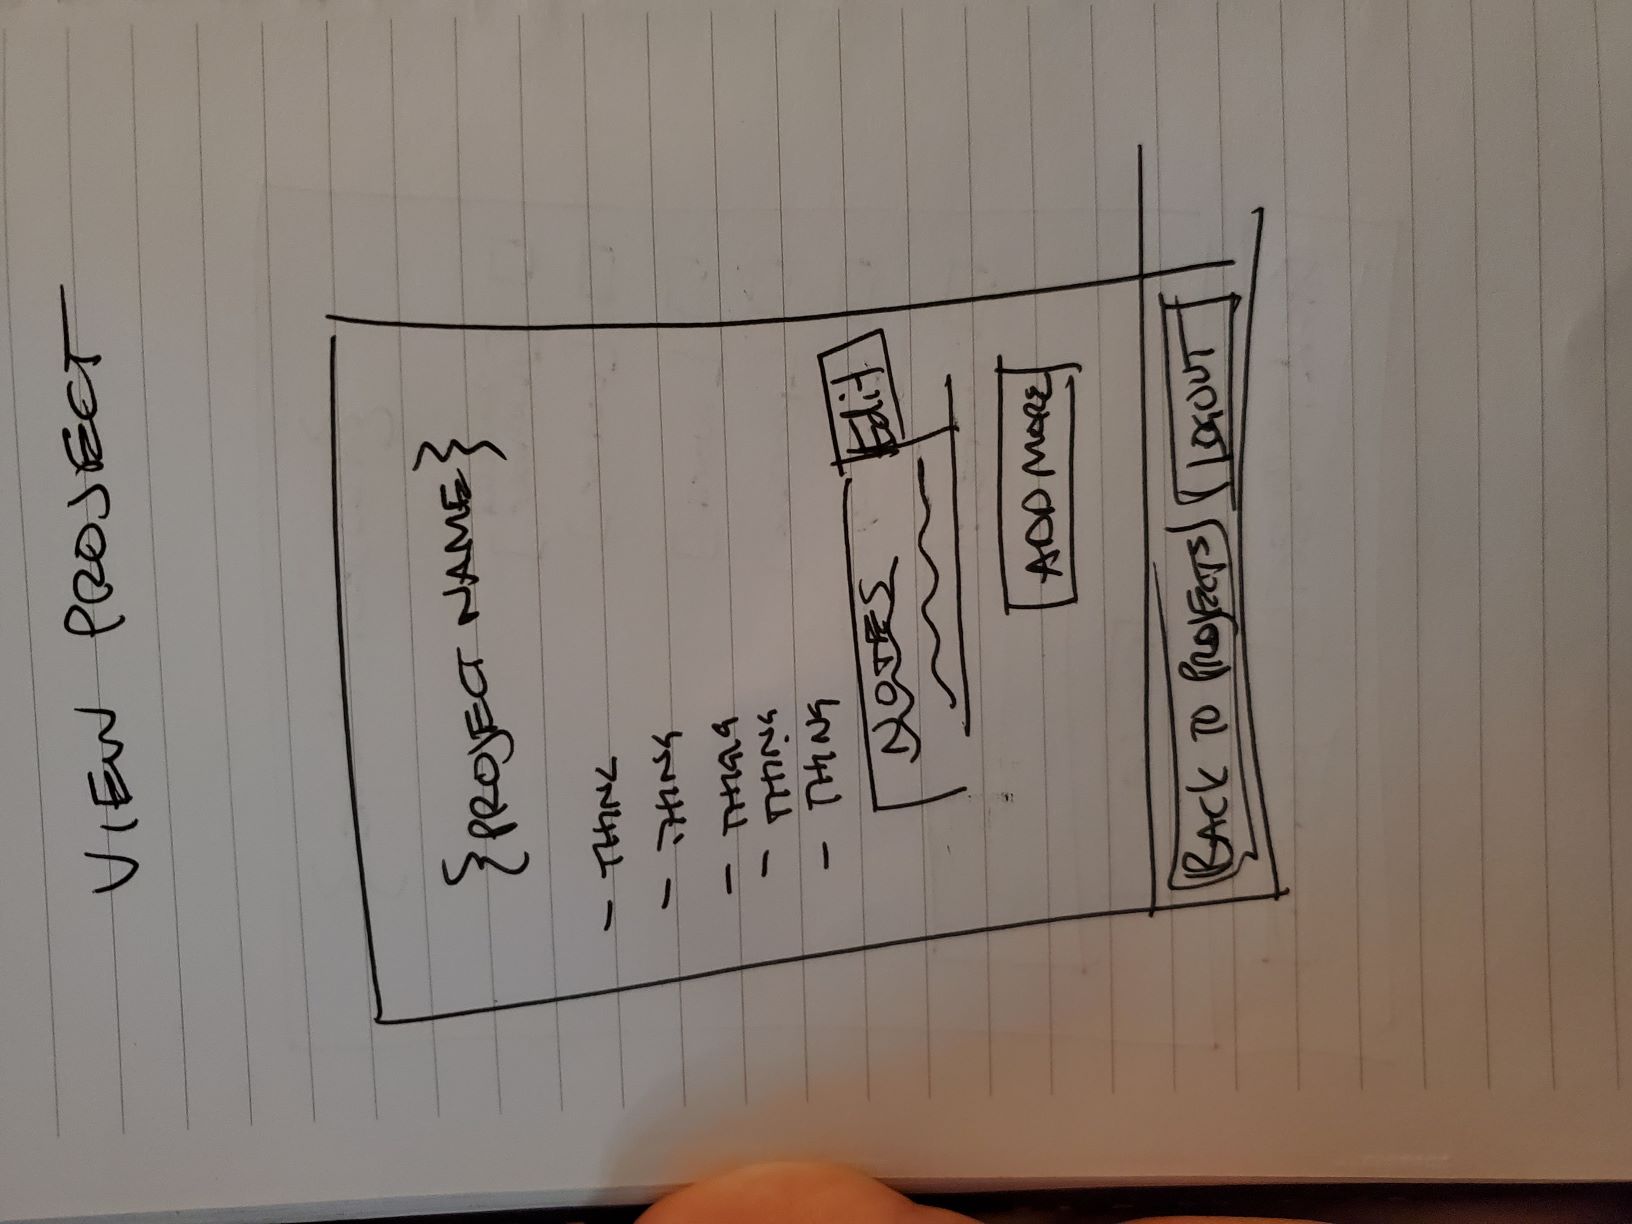 VIEW PROJECT
{PROJECT NAME}
- THING
- THING
- THING
- THING
- THING
NOTES
Edit
ADD MORE
BACK TO PROJECTS LOGOUT